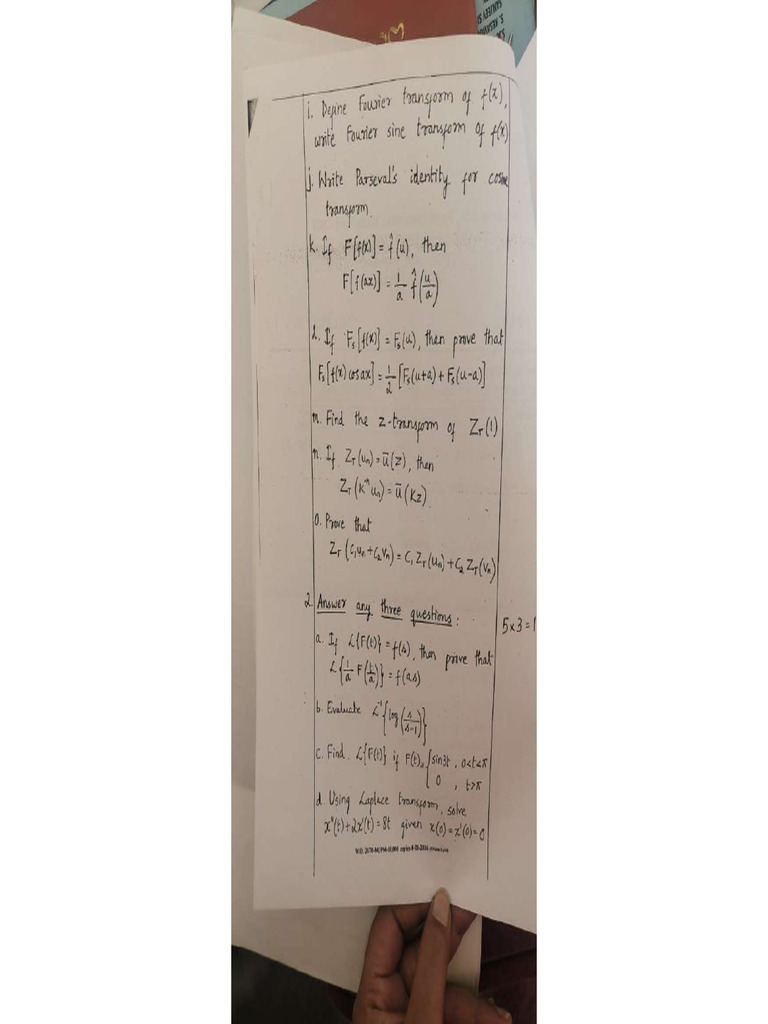 i. Define Fourier transform of f(x),
write Fourier sine transform of f(x)
j. Write Parseval's identity for cosine
transform.
k. If F[f(x)] = f̂(u), then
F[f(ax)] = 1/a f̂(u/a)
l. If Fs[f(x)] = Fs(u), then prove that
Fs[f(x) cos ax] = 1/2 [Fs(u+a) + Fs(u-a)]
m. Find the z-transform of ZT(1)
n. If ZT(un) = ū(z), then
ZT(K^n un) = ū(Kz)
o. Prove that
ZT(C1un + C2Vn) = C1 ZT(un) + C2 ZT(Vn)
2. Answer any three questions: 5×3=1
a. If L{F(t)} = f(s), then prove that
L{1/a F(t/a)} = f(as)
b. Evaluate L^-1{log(s/s-1)}
c. Find L{F(t)} if F(t) = {sin3t, 0<t<π
0, t>π
d. Using Laplace transform, solve
x"(t)+2x'(t)=8t given x(0)=x'(0)=0